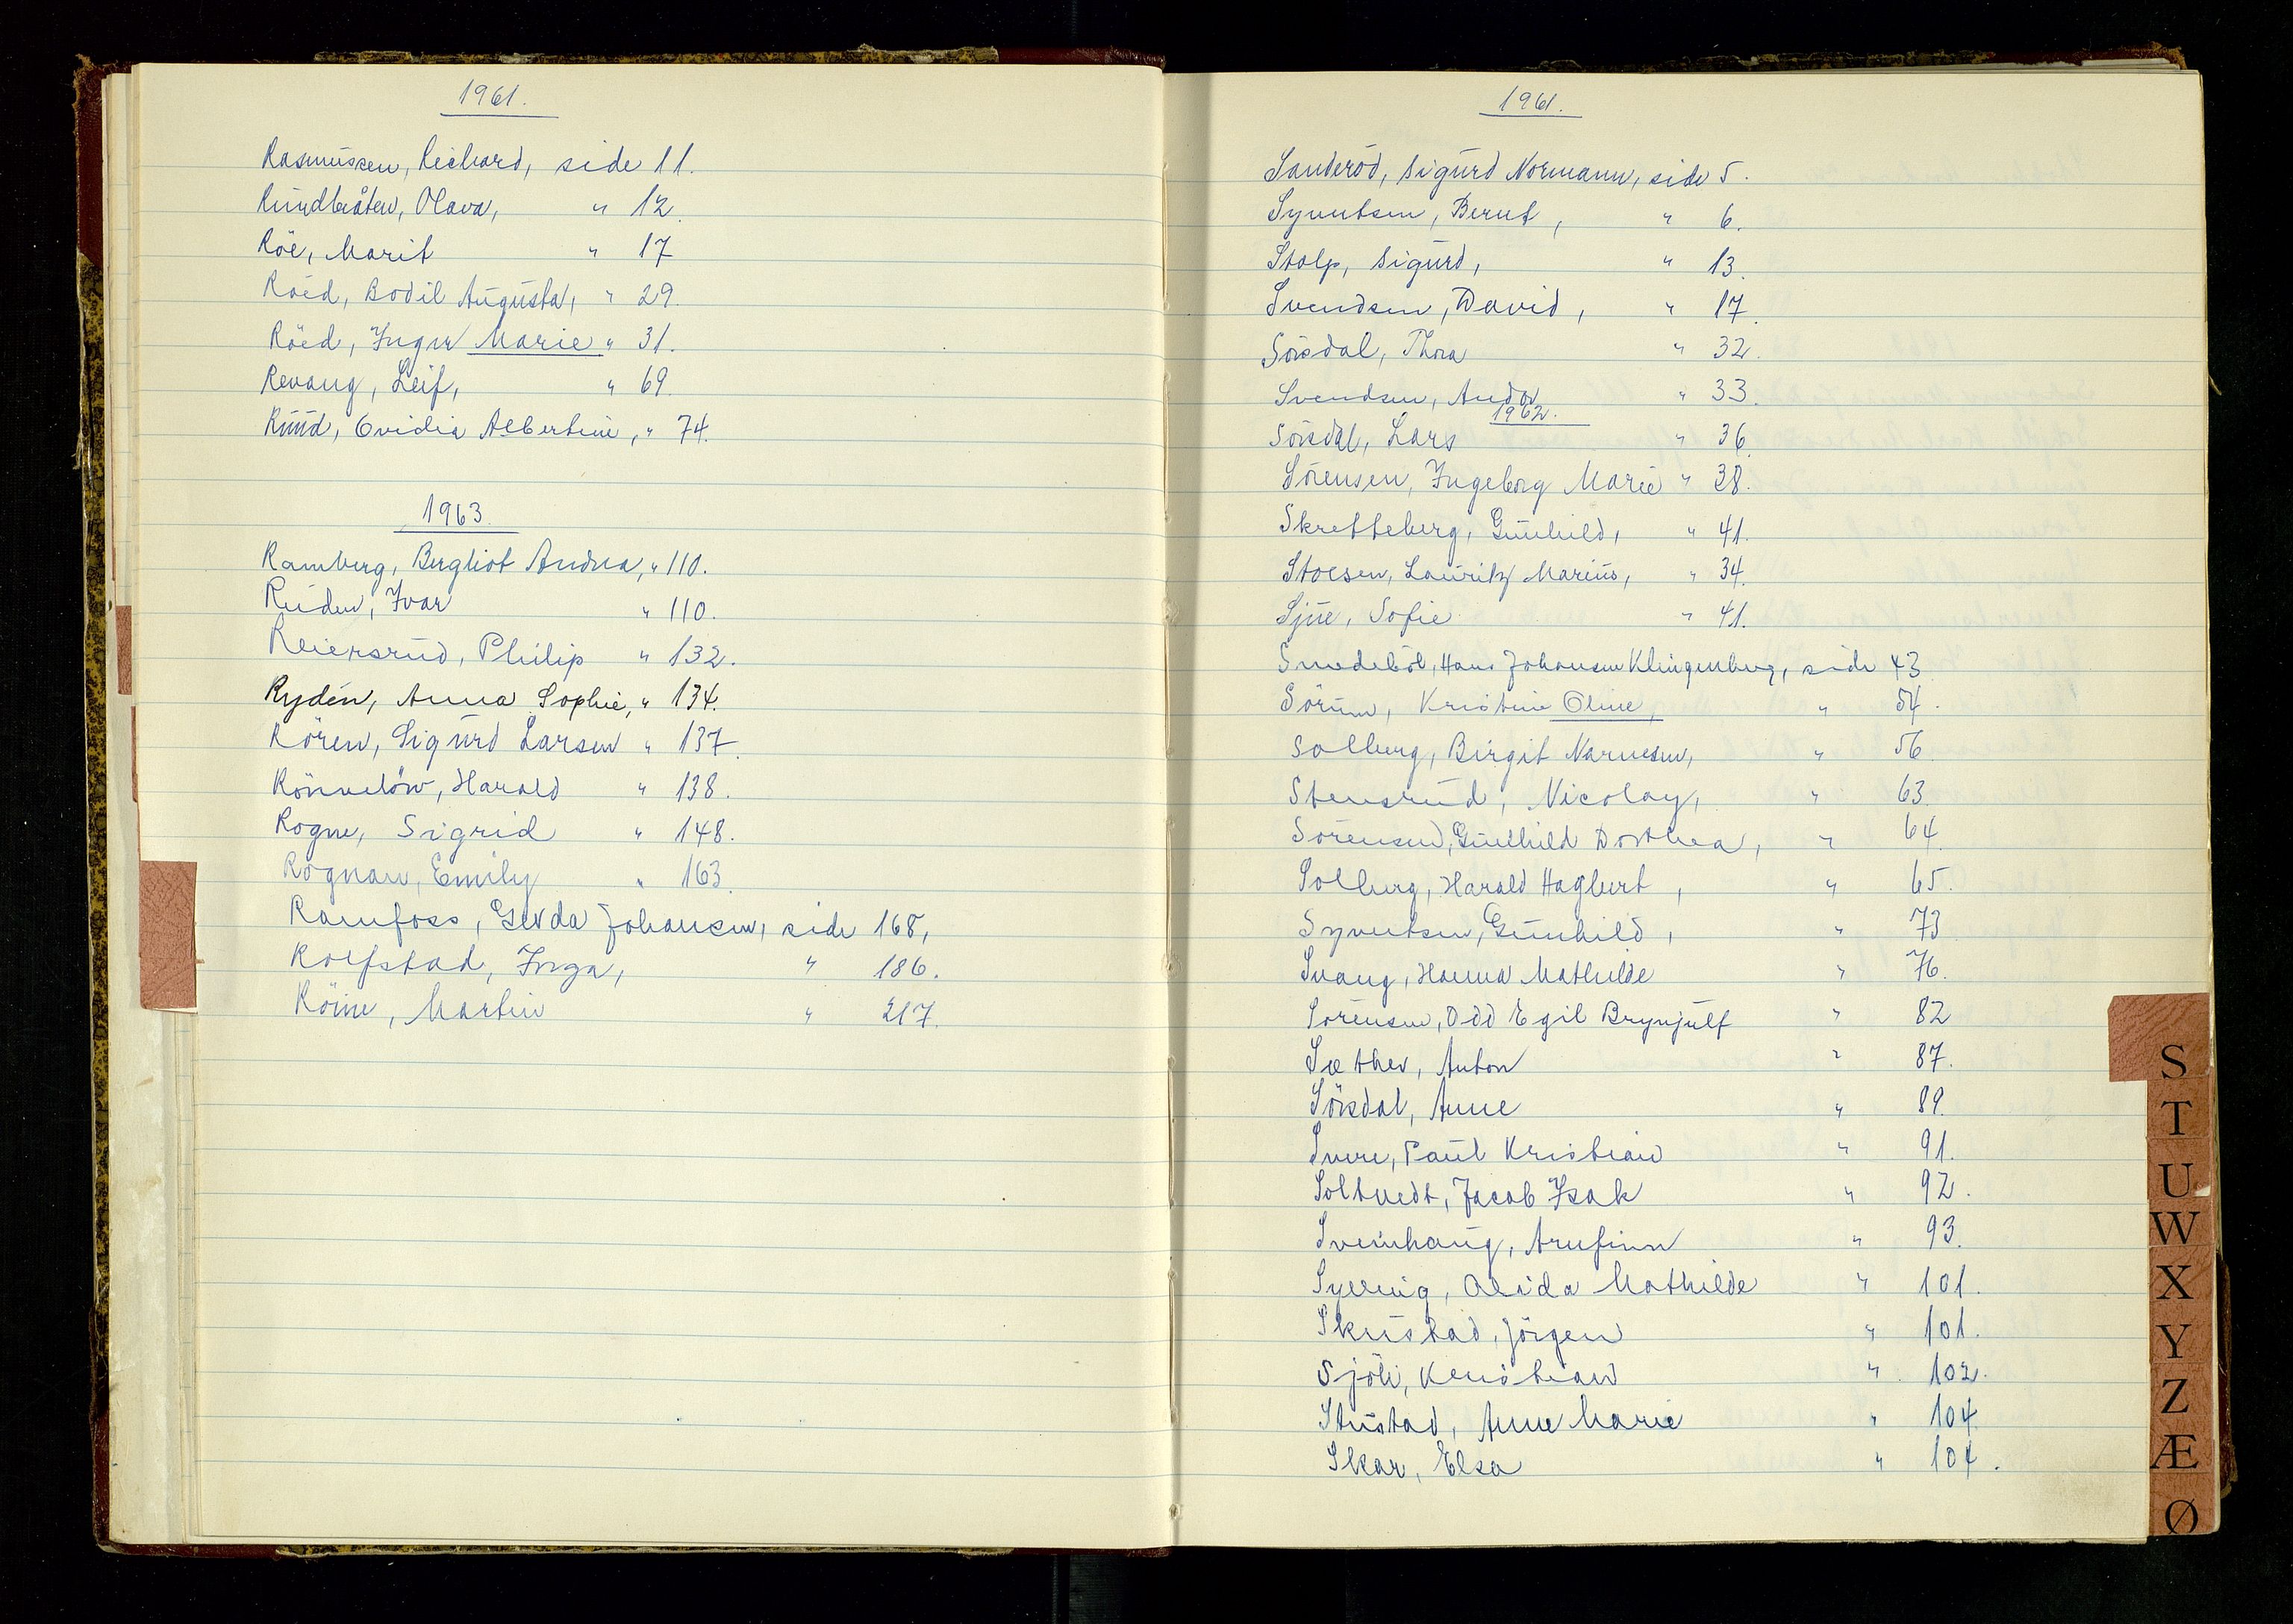 1961.
Rasmussen, Richard, side 11.
Rundbråten, Olava, " 12.
Röe, Marit " 17
Röed, Bodil Augusta, " 29.
Röed, Inger Marie " 31.
Revang, Leif, " 69.
Ruud, Ovidia Albertine, " 74.
1963.
Ramberg, Bergliot Andrea, " 110.
Reiden, Ivar " 110.
Reiersrud, Philip " 132.
Rydén, Anna Sophie, " 134.
Rören, Sigurd Larsen " 137.
Rönnelöw, Harald " 138.
Rogne, Sigrid " 148.
Rognan, Emily " 163.
Ramfoss, Gerda Johansen, side 168,
Rolfstad, Inga, " 186.
Röine, Martin " 217.
1961.
Sanderöd, Sigurd Normann, side 5.
Syvertsen, Bernt, " 6.
Stolp, Sigurd, " 13.
Svendsen, David, " 17.
Sörsdal, Thora " 32.
Svendsen, Andor " 33.
1962.
Sörsdal, Lars " 36.
Sörensen, Ingeborg Marie " 38.
Skretteberg, Gunhild, " 41.
Stoesen, Lauritz Marius, " 34.
Sjue, Sofie " 41.
Smedeböl, Hans Johansen Klingenberg, side 43
Sörum, Kristine Oline, " 54.
Solberg, Birgit Narvesen, " 56.
Stensrud, Nicolay, " 63.
Sörensen, Gunhild Dorthea, " 64.
Solberg, Harald Hagbert, " 65.
Syvertsen, Gunhild, " 73
Svang, Hanna Mathilde " 76.
Sörensen, Odd Egil Brynjulf " 82
Sæther, Anton " 87.
Sörsdal, Anne " 89.
Svere, Paul Kristian " 91.
Soltvedt, Jacob Isak " 92.
Sveinhaug, Arnfinn " 93.
Sylling, Alida Mathilde " 101.
Skustad, Jörgen " 101.
Sjöli, Kristian " 102.
Stustad, Anne Marie " 104.
Skar, Elsa " 104.
S
T
U
W
X
Y
Z
Æ
Ø